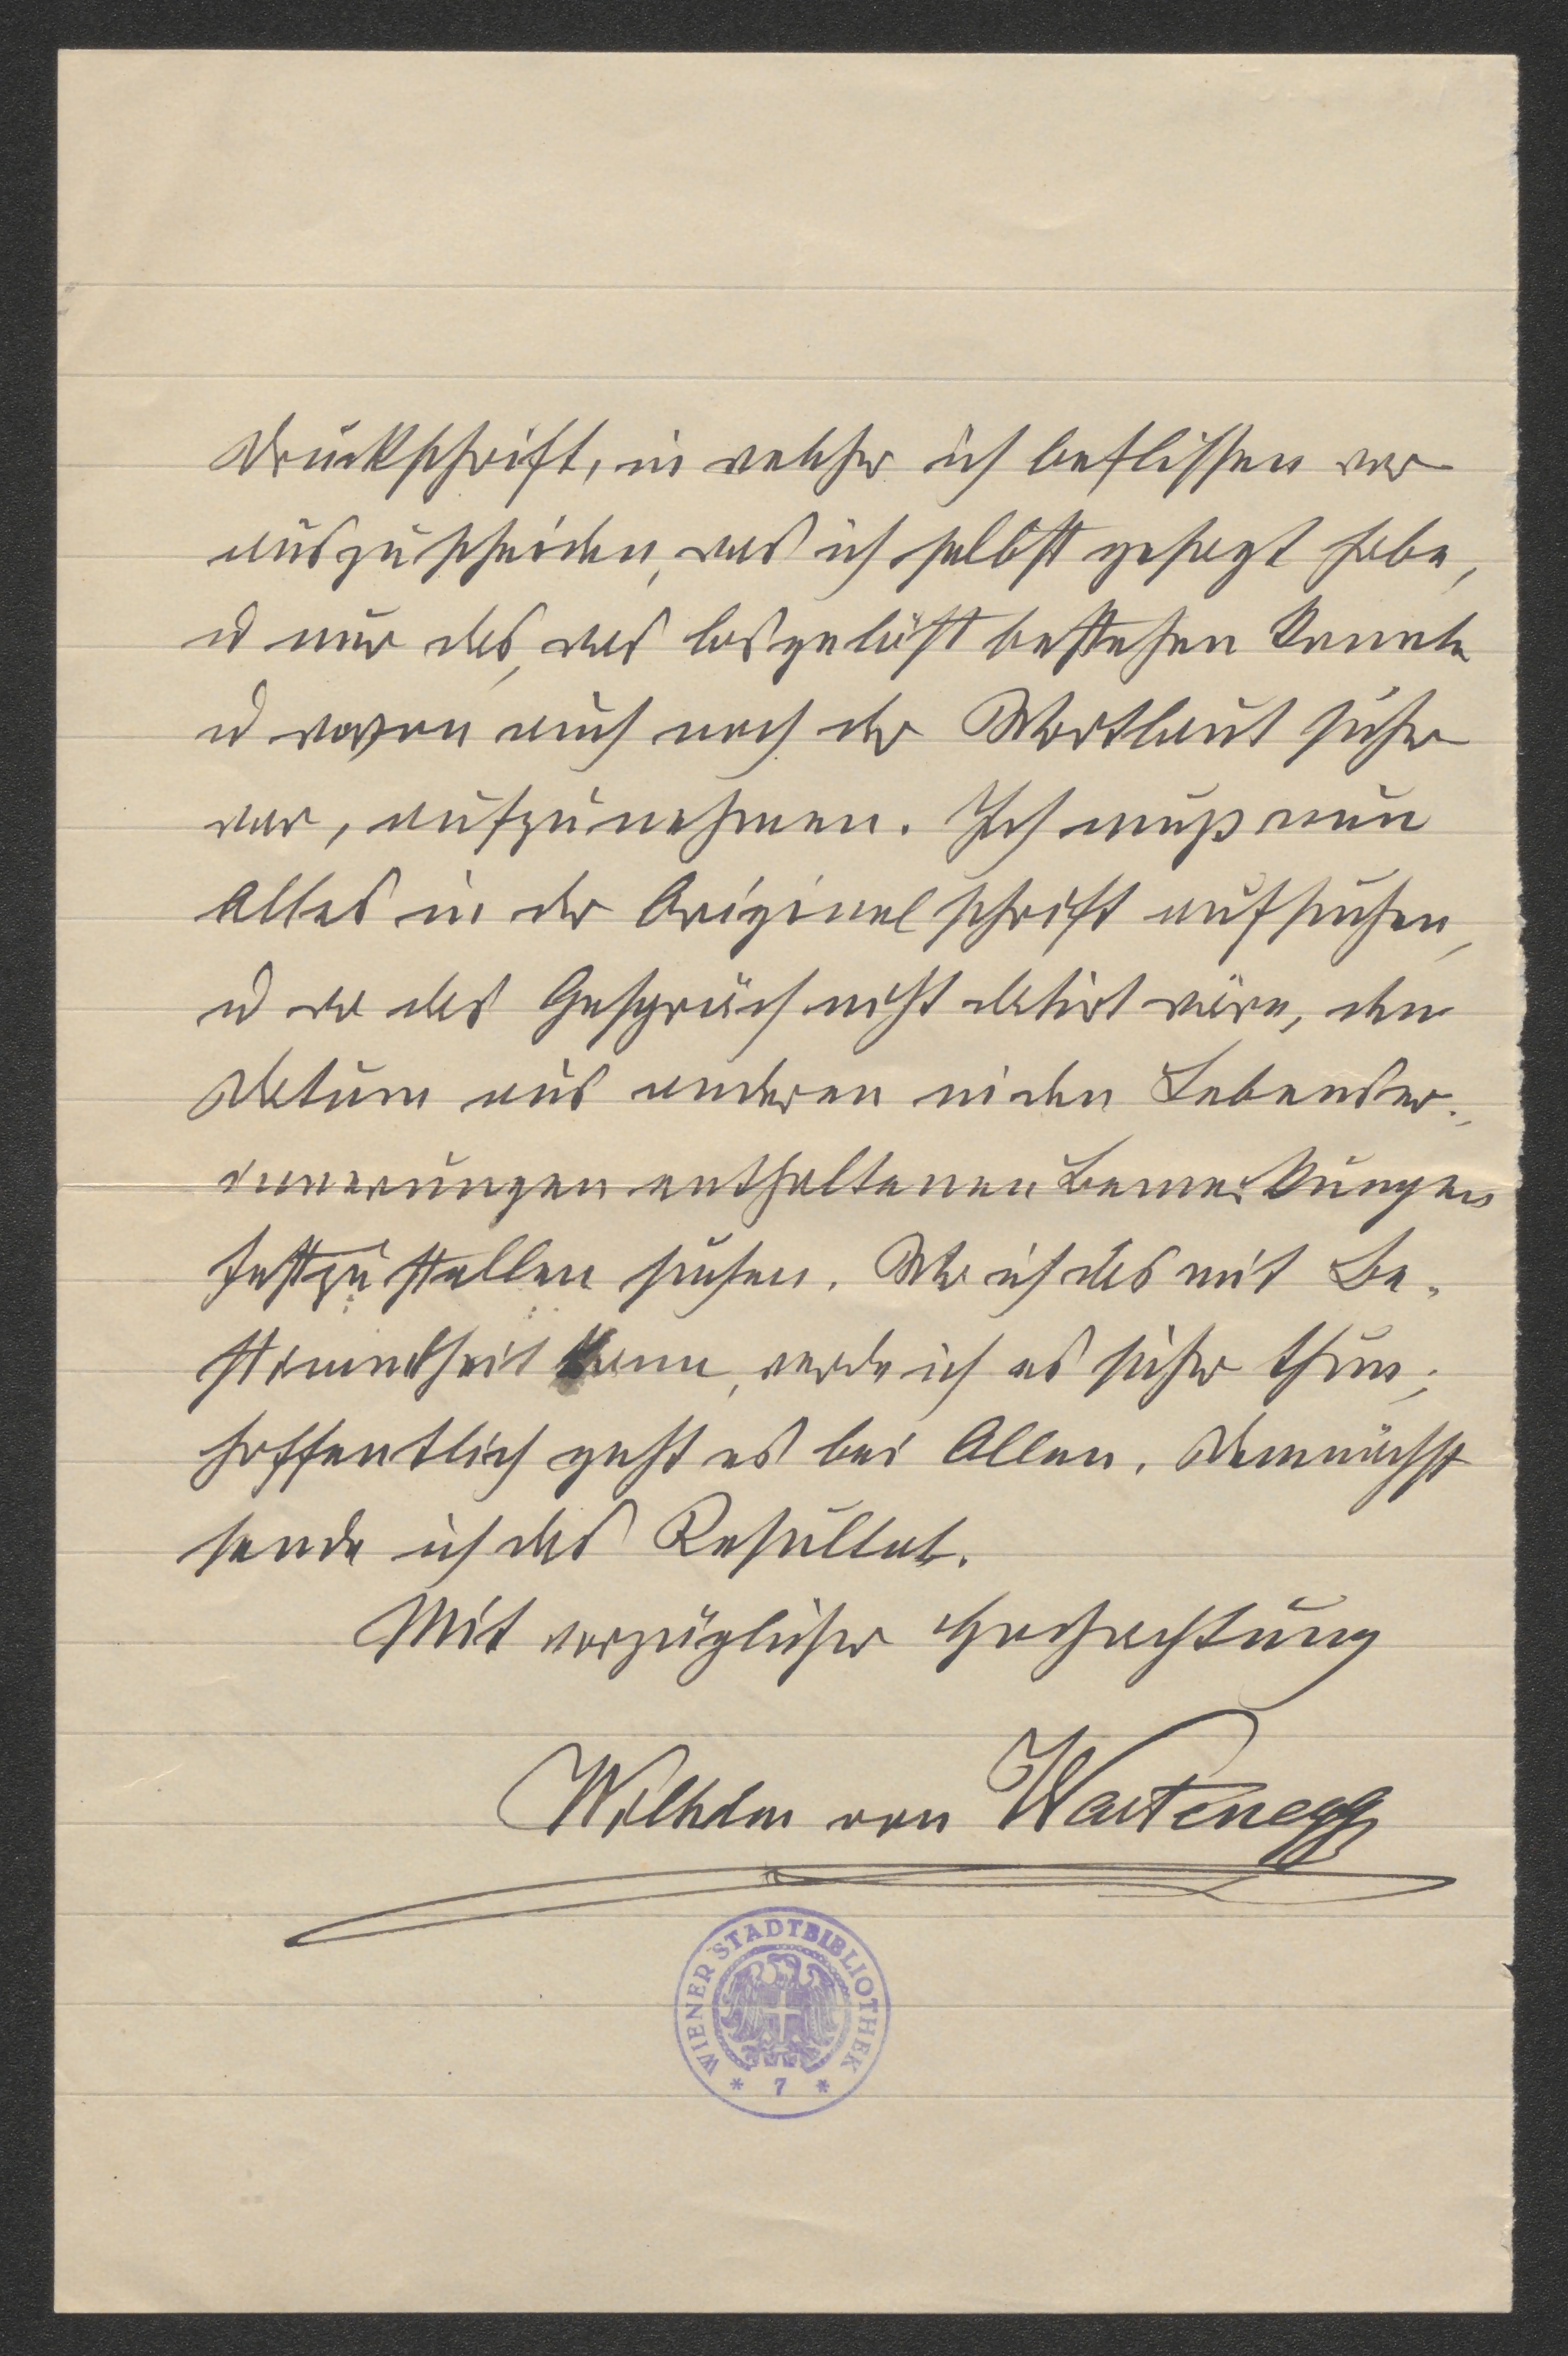 Druckschrift, in welcher ich beflissen war
auszuscheiden, was ich selbst gesagt habe,
u nur das, was losgelöst bestehen konnte
u wovon auch noch der Wortlaut sicher
war, aufzunehmen. Ich muß nun
Alles in der Originalschrift aufsuchen,
u wo das Gespräch nicht datirt wäre, den
Datum aus anderen in den Lebenser-
innerungen enthaltenen Bemerkungen
festzustellen suchen. Wo ich das mit Be-
stimmtheit kann, werde ich es sicher thun;
hoffentlich geht es bei Allen. Demnächst
sende ich das Resultat.
Mit vorzüglicher Hochachtung
Wilhelm von Wartenegg
WIENER STADTBIBLIOTHEK
* 7 *